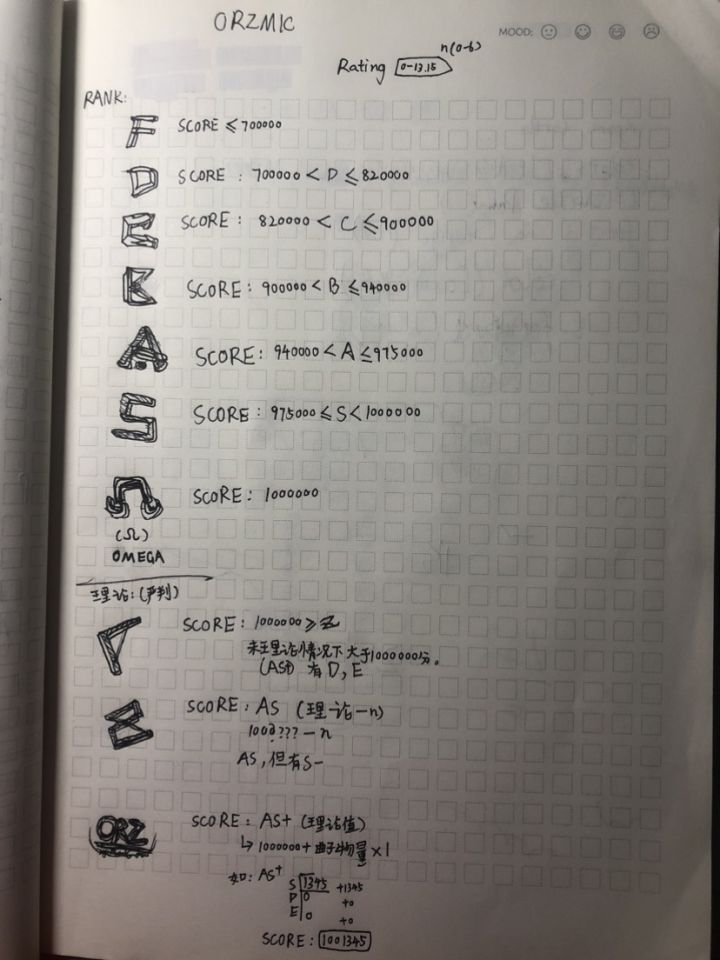 ORZMIC
MOOD:
Rating 0-13.15 n(0-6)
RANK:
F SCORE ≤700000
D SCORE : 700000 < D ≤820000
C SCORE : 820000 < C ≤900000
B SCORE : 900000 < B ≤940000
A SCORE : 940000 < A ≤975000
S SCORE : 975000 ≤ S < 1000000
Ω SCORE : 1000000
(Ω)
OMEGA
理论:(严判)
SCORE : 1000000 ≥
未至理论情况下大于1000000分。
有 D, E
Σ SCORE : AS (理论-n)
100???? - n
AS,但有S-
ORZ SCORE : AS+ (理论值)
↳ 1000000+曲子物量×1
如: AS+
S 1345 +1345
D 0 +0
E 0 +0
SCORE : 1001345